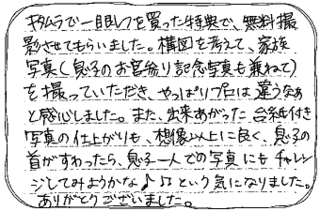 キタムラで一眼レフを買った特典で、無料撮
影させてもらいました。構図を考えて、家族
写真(息子のお宮参り記念写真も兼ねて)
を撮っていただき、やっぱりプロは違うなぁ
と感心しました。また、出来あがった台紙付き
写真の仕上がりも、想像以上に良く、息子の
首がすわったら、息子一人での写真にもチャレン
ジしてみようかな♪♫という気になりました。
ありがとうございました。